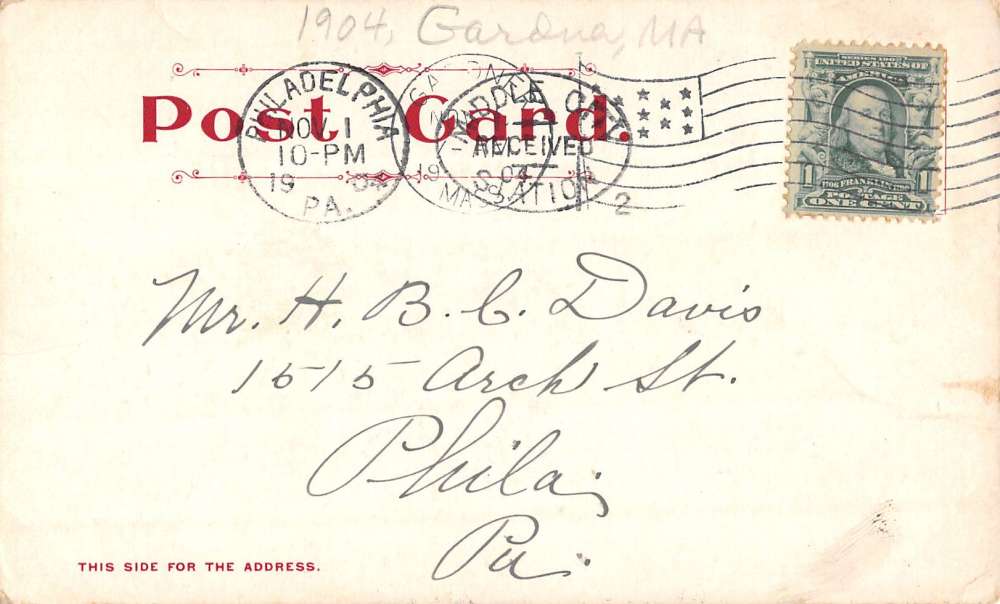 1904, Gardner, MA
Post Card.
PHILADELPHIA
NOV. 1
10-PM
19 04
PA.
GARDNER
MASS
MIDDLE CITY
RECEIVED
STATION
2
SERIES 1902
UNITED STATES OF
AMERICA
1 1
1706 FRANKLIN 1790
POSTAGE
ONE CENT
Mr. H. B. C. Davis
1515 Arch St.
Phila;
Pa.
THIS SIDE FOR THE ADDRESS.